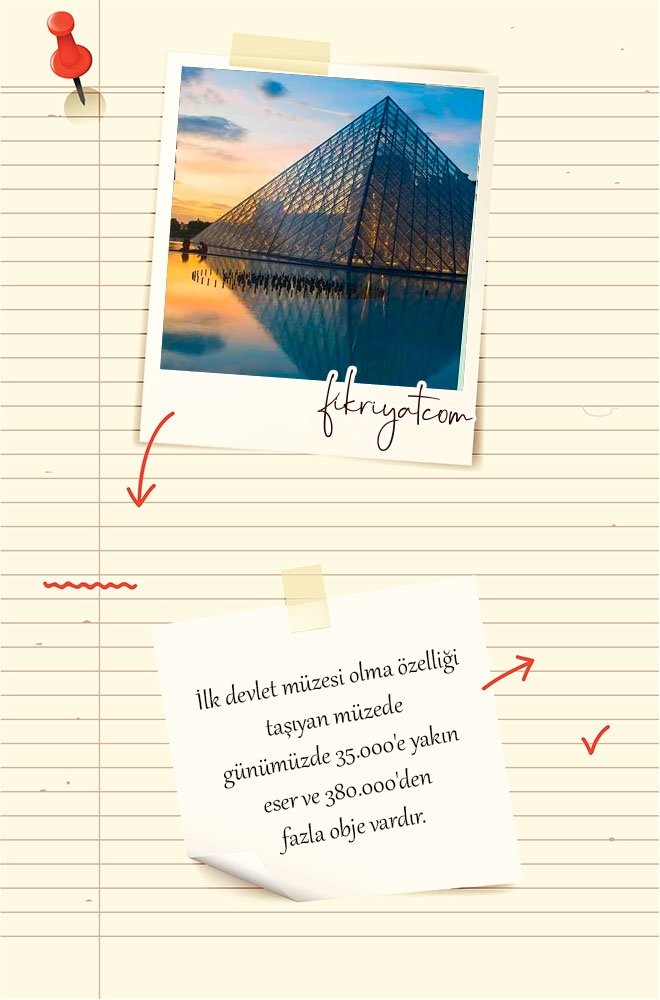 fikriyatcom
İlk devlet müzesi olma özelliği
taşıyan müzede
günümüzde 35.000'e yakın
eser ve 380.000'den
fazla obje vardır.